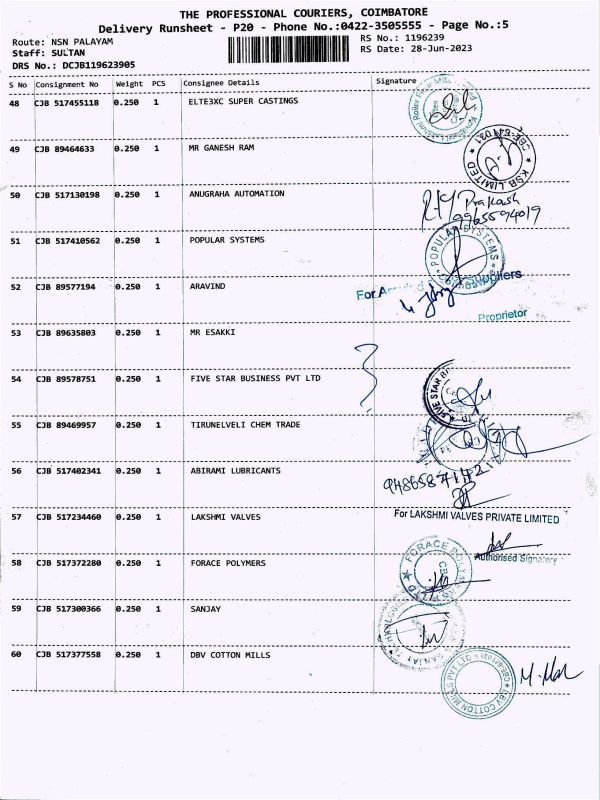 THE PROFESSIONAL COURIERS, COIMBATORE
Delivery Runsheet - P20 - Phone No.:0422-3505555 - Page No.:5
Route: NSN PALAYAM RS No.: 1196239
Staff: SULTAN RS Date: 28-Jun-2023
DRS No.: DCJB119623905
S No Consignment No Weight PCS Consignee Details Signature
48 CJB 517455118 0.250 1 ELTE3XC SUPER CASTINGS
49 CJB 89464633 0.250 1 MR GANESH RAM
CBE-641031 * KSB LIMITED *
50 CJB 517130198 0.250 1 ANUGRAHA AUTOMATION
Prakash
9965594019
51 CJB 517410562 0.250 1 POPULAR SYSTEMS
POPULAR SYSTEMS
52 CJB 89577194 0.250 1 ARAVIND
For Suppliers
Proprietor
53 CJB 89635803 0.250 1 MR ESAKKI
54 CJB 89578751 0.250 1 FIVE STAR BUSINESS PVT LTD
FIVE STAR
55 CJB 89469957 0.250 1 TIRUNELVELI CHEM TRADE
56 CJB 517402341 0.250 1 ABIRAMI LUBRICANTS
57 CJB 517234460 0.250 1 LAKSHMI VALVES
For LAKSHMI VALVES PRIVATE LIMITED
Authorised Signatory
58 CJB 517372280 0.250 1 FORACE POLYMERS
FORACE
59 CJB 517300366 0.250 1 SANJAY
60 CJB 517377558 0.250 1 DBV COTTON MILLS
DBV COTTON MILLS PVT LTD